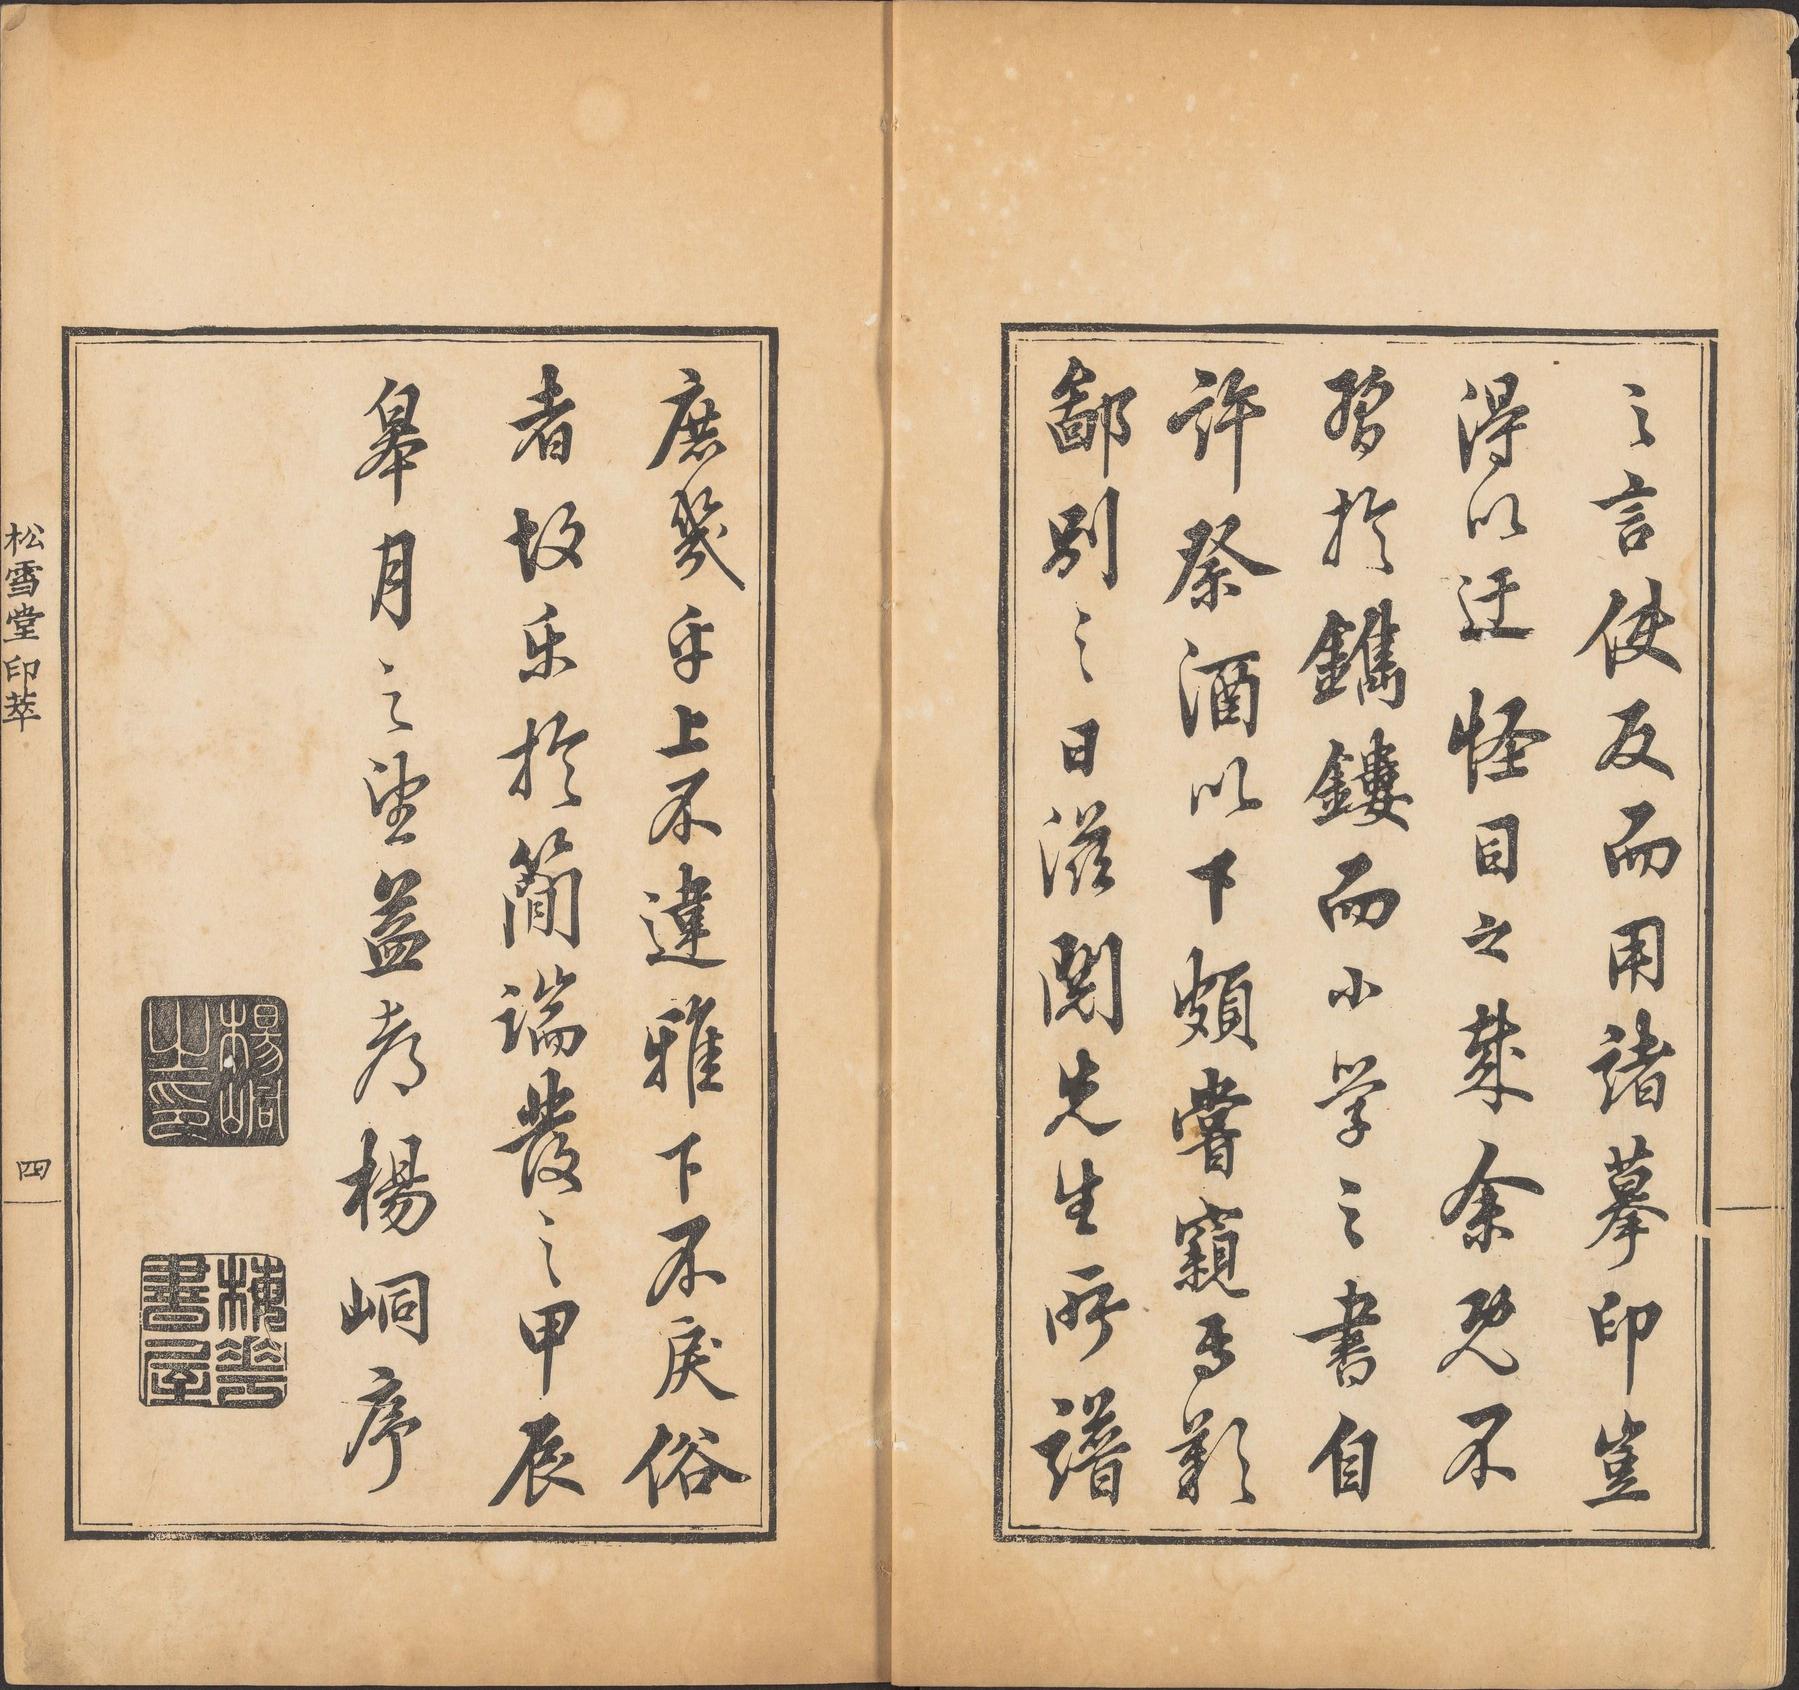 之言使反而用諸摹印豈
得以迂怪目之哉余既不
習於鐫鏤而小学之書自
許祭酒以下頗嘗窺焉歎
鄙別之日滋閱先生所譜
庶幾乎上不違雅下不戾俗
者故乐於簡端發之甲辰
皋月之望益考楊峒序
楊峒之印
書屋
松雪堂印萃
四